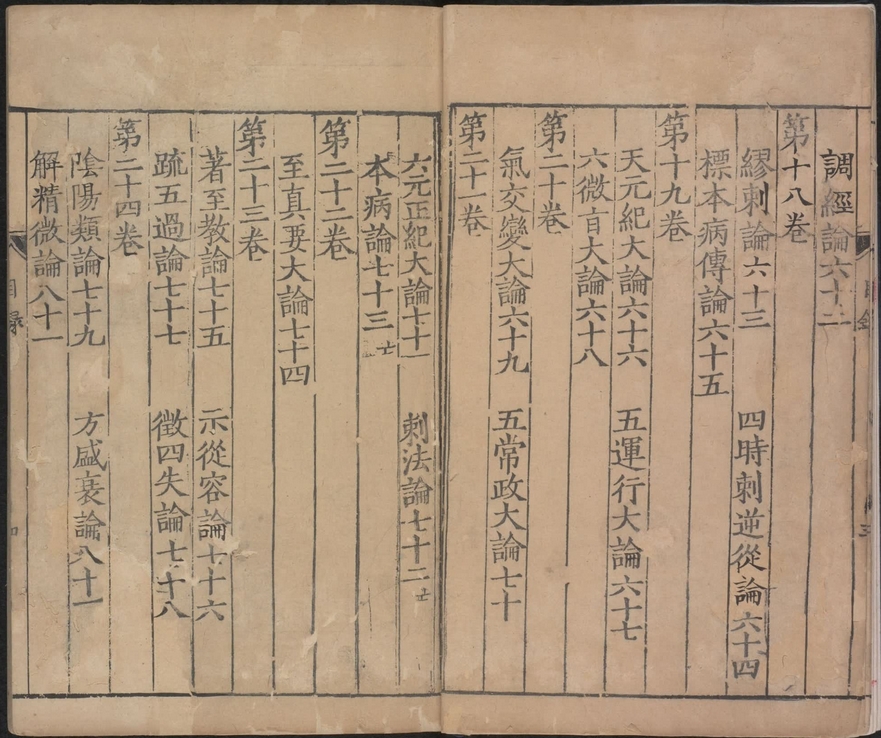 調經論六十二
第十八卷
繆刺論六十三　四時刺逆從論六十四
標本病傳論六十五
第十九卷
天元紀大論六十六　五運行大論六十七
六微旨大論六十八
第二十卷
氣交變大論六十九　五常政大論七十
第二十一卷
六元正紀大論七十一　刺法論七十二亡
本病論七十三亡
第二十二卷
至真要大論七十四
第二十三卷
著至教論七十五　示從容論七十六
疏五過論七十七　徵四失論七十八
第二十四卷
陰陽類論七十九　方盛衰論八十一
解精微論八十一
目録